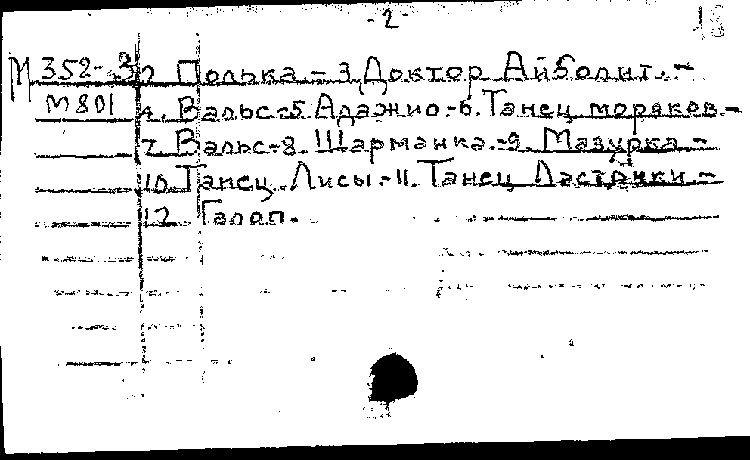 -2-
18
М 352-3 2. Полька.- 3. Доктор Айболит.-
М801 4. Вальс.-5. Адажио.-6. Танец моряков.-
7. Вальс.-8. Шарманка.-9. Мазурка.-
10. Танец Лисы.-11. Танец Ласточки.-
12. Галоп.